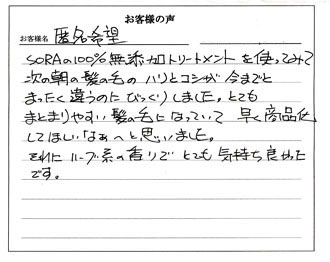 お客様の声
お客様名 匿名希望
SORAの100%無添加トリートメントを使ってみて
次の朝の髪の毛のハリとコシが今までと
まったく違うのにびっくりしました。とても
まとまりやすい髪の毛になっていて 早く商品化
してほしいなぁ〜と思いました。
それにハーブ系の香りでとても気持ち良かった
です。